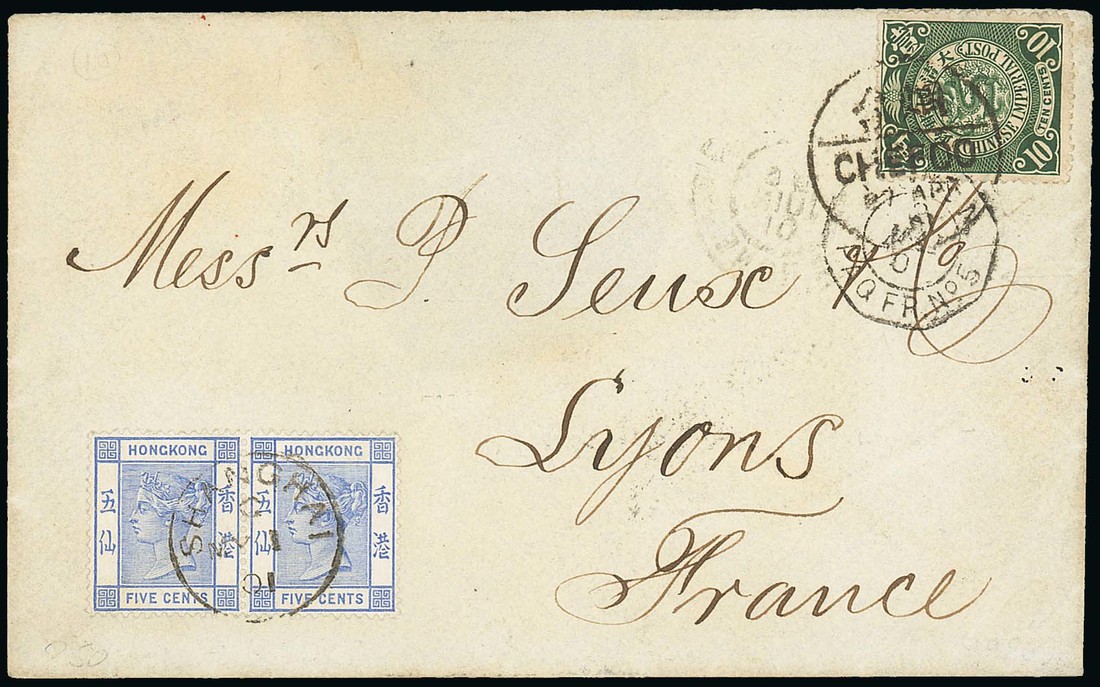 10
10
TEN CENTS
CHINESE IMPERIAL POST
CHEFOO
FR Nº 5
Messrs P Seux
Lyons
France
HONGKONG
五仙
香港
FIVE CENTS
HONGKONG
五仙
香港
FIVE CENTS
SHANGHAI
C
01